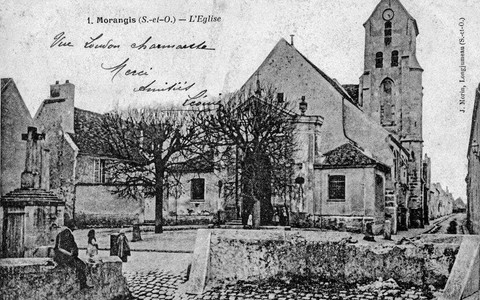 1. Morangis (S.-et-O.) — L'Eglise
Vue London charmante
Merci Amitiés
J. Norin, Longjumeau (S.-et-O.)